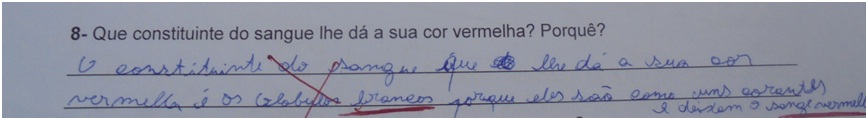 8- Que constituinte do sangue lhe dá a sua cor vermelha? Porquê?
O constituinte do sangue que lhe dá a sua cor
vermelha é os globulos brancos porque eles são como uns corantes
e deixem o sange vermelh